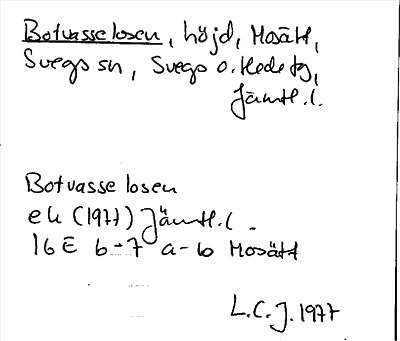 Botvasselosen, höjd, Mosätt,
Svegs sn, Svegs o. Hede tg,
Jämtl. l.
Botvasselosen
ek (1977) Jämtl. l.
16E 6-7 a-b Mosätt
L.C.J. 1977